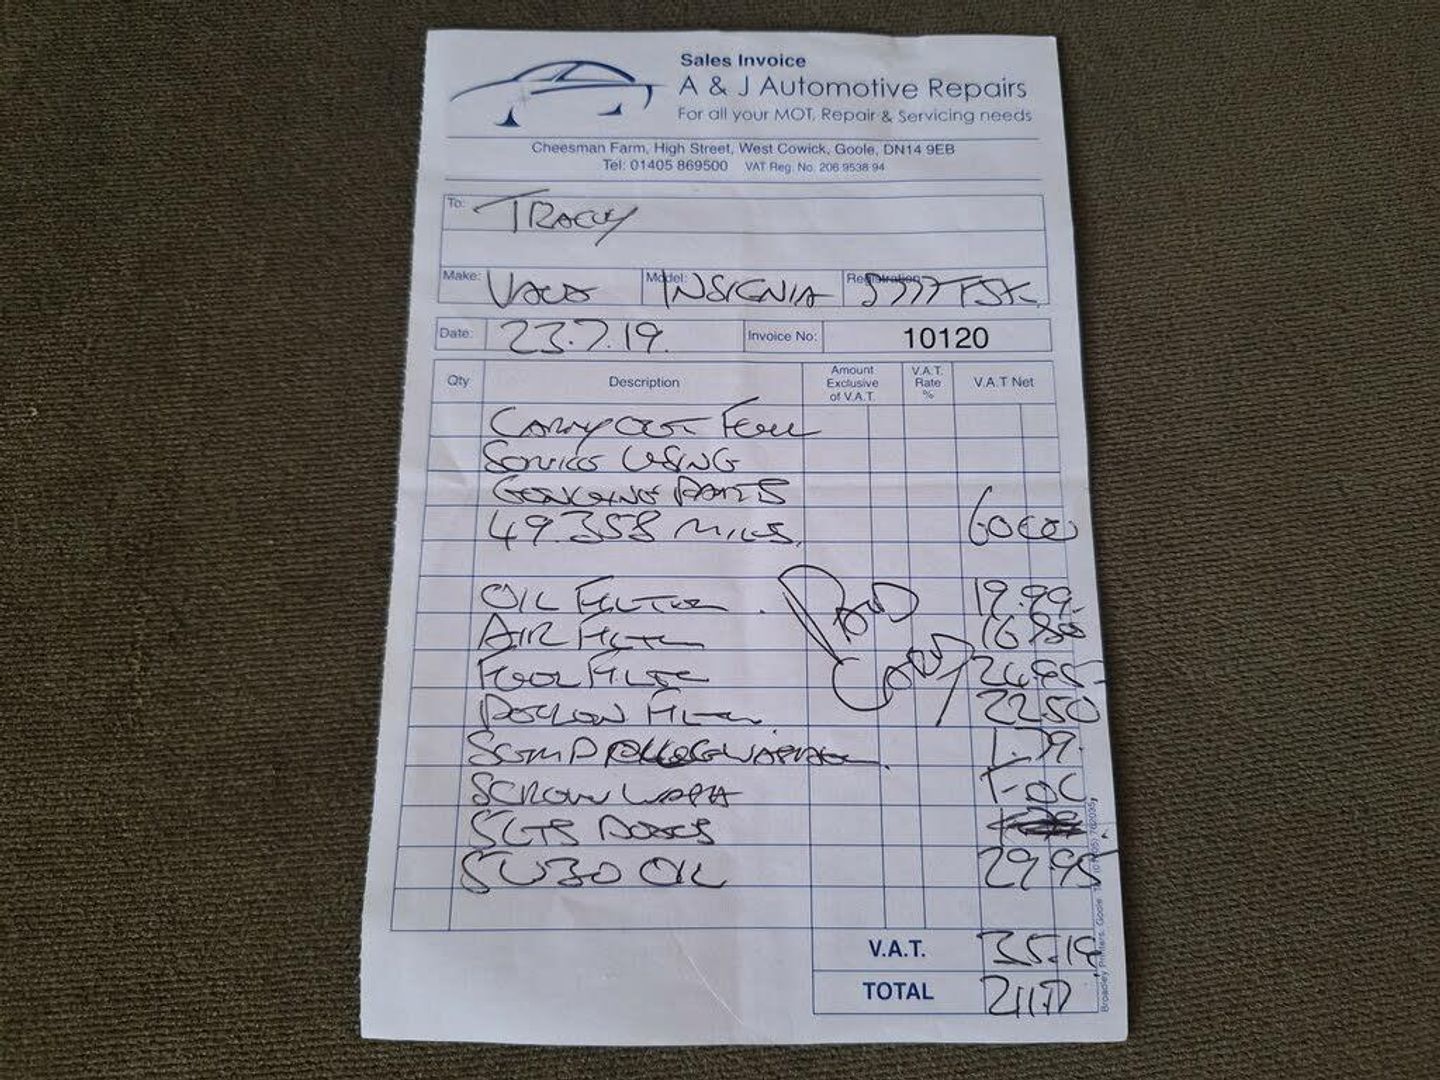 Sales Invoice
A & J Automotive Repairs
For all your MOT, Repair & Servicing needs
Cheesman Farm, High Street, West Cowick, Goole, DN14 9EB
Tel: 01405 869500 VAT Reg. No. 206 9538 94
To: TRACEY
Make: VAUX Model: INSIGNIA Registration
Date: 23.7.19. Invoice No: 10120
Qty Description Amount Exclusive of V.A.T. V.A.T. Rate % V.A.T Net
CARRY OUT FULL
SERVICE USING
GENUINE PARTS
49.358 MILES. 6000
OIL FILTER. PAID 19.99.
AIR FILTER 16.80
FUEL FILTER 24.85
POLLEN FILTER 22.50
SUMP PLUG WASHER. 1.79.
SCREEN WASH F.O.C
5LTS
5W30 OIL 29.95
V.A.T. 35.18
TOTAL 211.